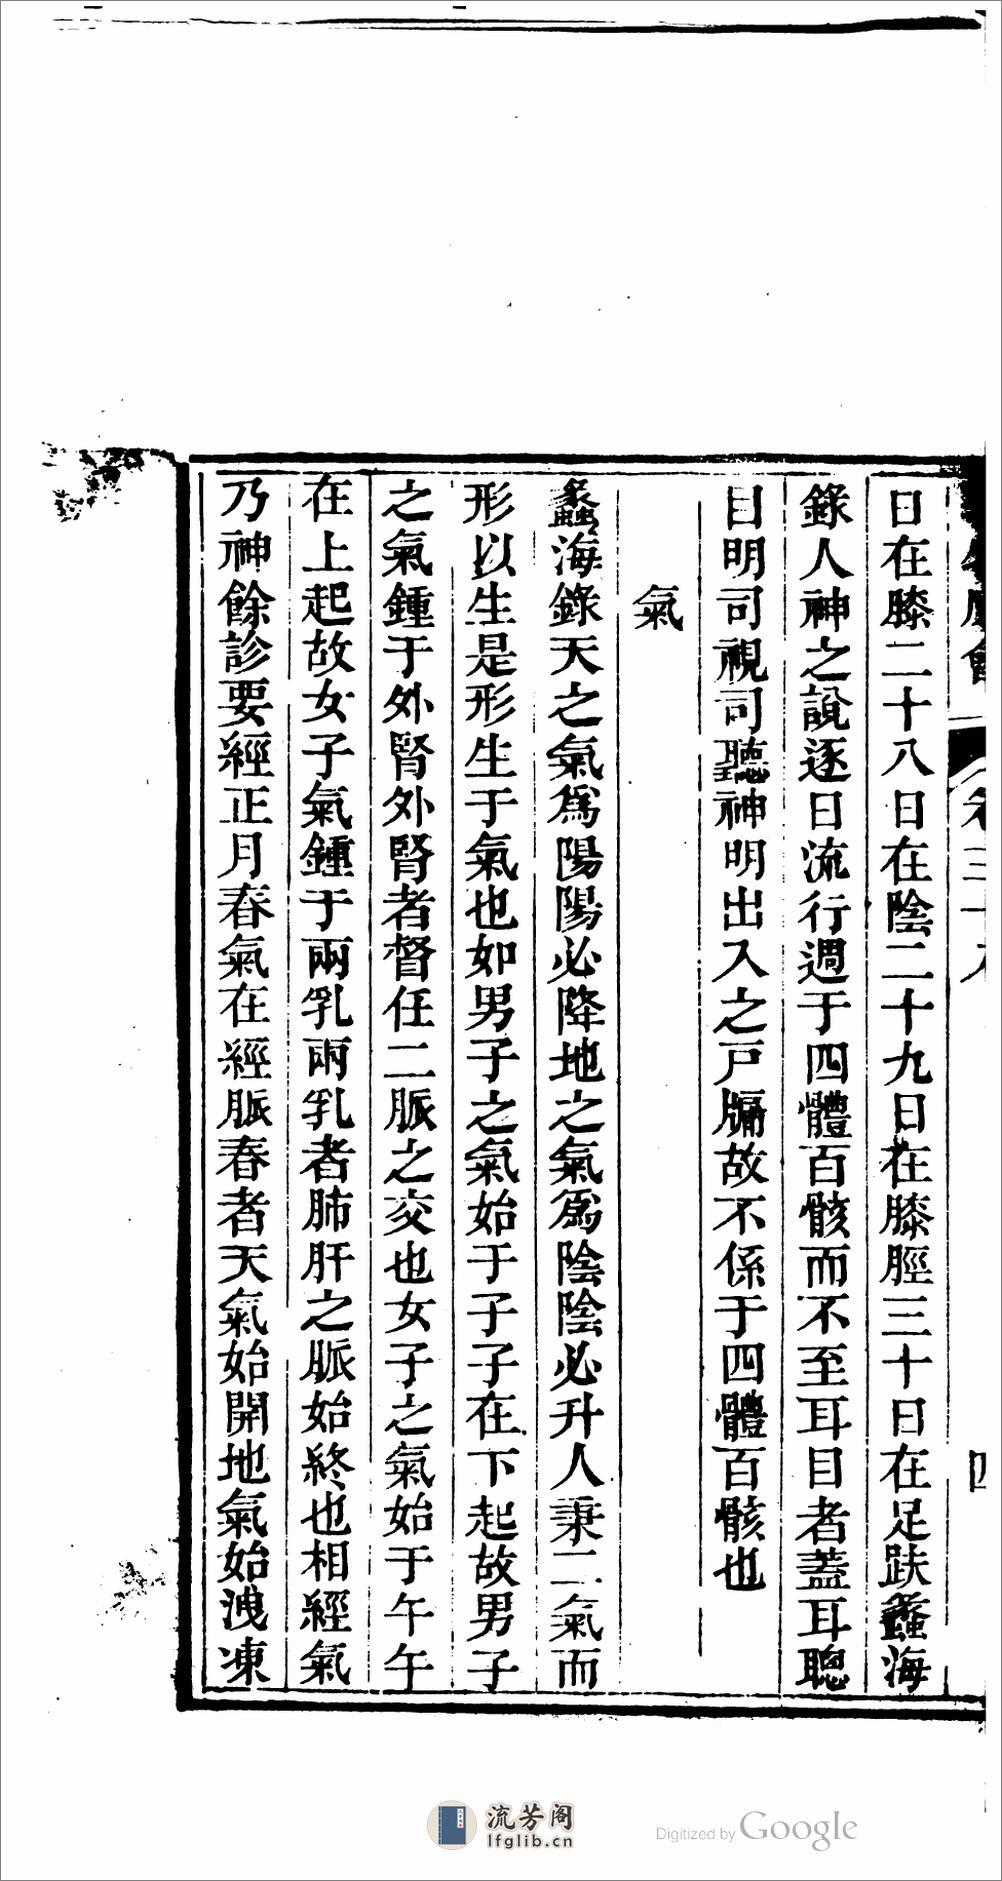 卷三十八
四
日在膝二十八日在陰二十九日在膝脛三十日在足趺蠡海
錄人神之說逐日流行週于四體百骸而不至耳目者蓋耳聰
目明司視司聽神明出入之戸牖故不係于四體百骸也
氣
蠡海錄天之氣爲陽陽必降地之氣爲陰陰必升人秉二氣而
形以生是形生于氣也如男子之氣始于子子在下起故男子
之氣鍾于外腎外腎者督任二脈之交也女子之氣始于午午
在上起故女子氣鍾于兩乳兩乳者肺肝之脈始終也相經氣
乃神餘診要經正月春氣在經脈春者天氣始開地氣始洩凍
流芳阁
lfglib.cn
Digitized by Google